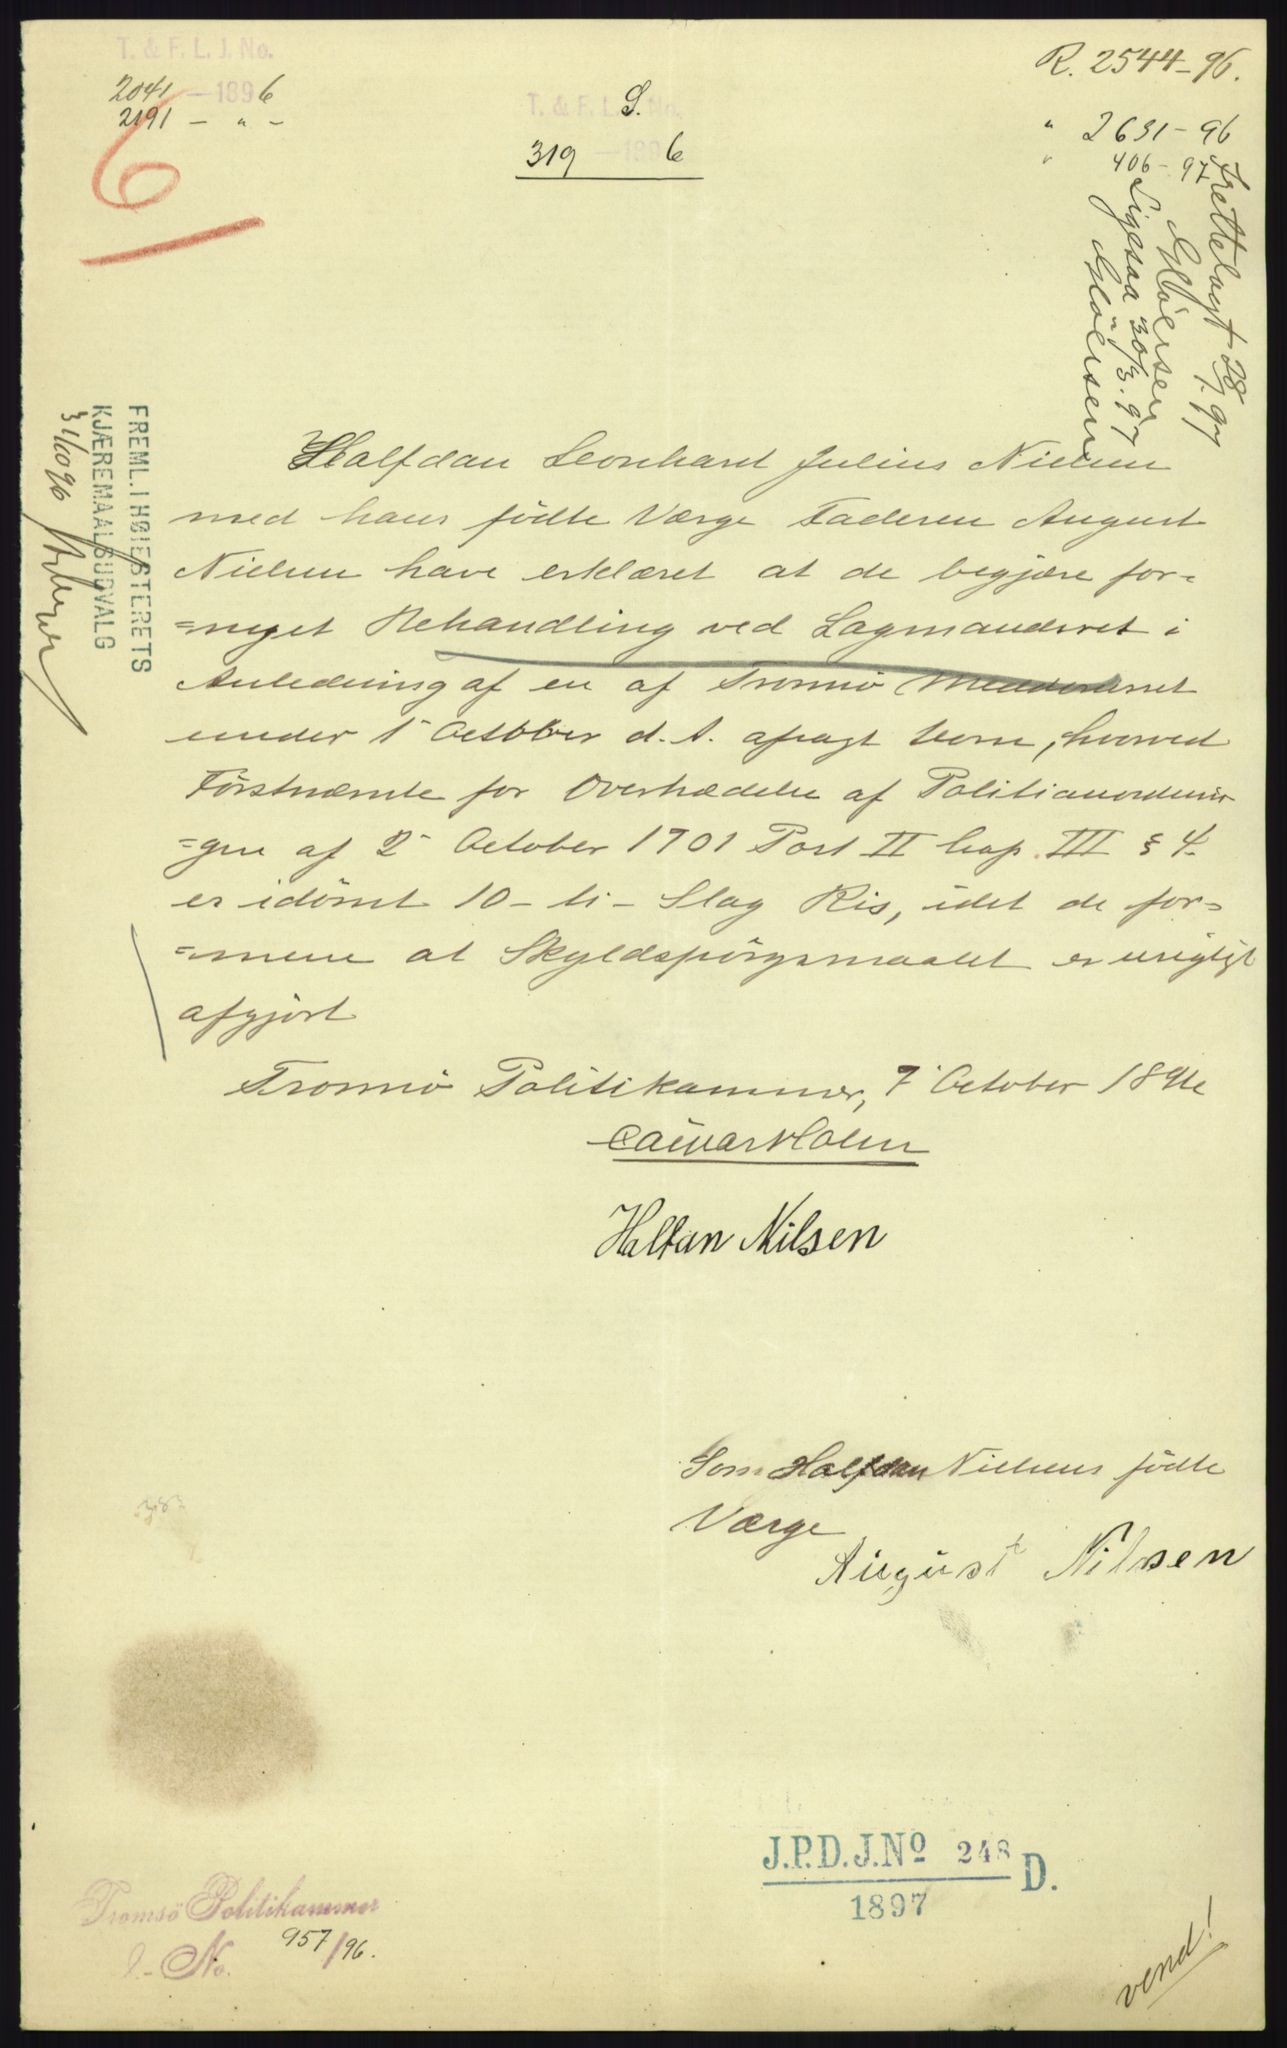 T. & F. L. J. No.
2041 — 1896
2191 — " —
6
T. & F. L. J. No.
S.
319 — 1896
R. 2544-96.
" 2631-96
" 406-97
Fremlagt 28/1.97
Ligesaa 30/3.97
FREML. I HØIESTERETS
KJÆREMAALSUDVALG
31/10 96
Halfdan Leonhard Julius Nielsen
med hans födte Værge Faderen August
Nielsen have erklæret at de begjære for-
=nyet Behandling ved Lagmandsret i
Anledning af en af Tromsö Meddomsret
under 1ste October d. A. afsagt Dom, hvorved
Förstnævnte for Overtrædelse af Politianordnin
=gen af 22 October 1701 Post II Cap. III § 4
er idömt 10 - ti - Slag Ris, idet de for=
=mene at Skyldspörgsmaalet er urigtigt
afgjört
Tromsö Politikammer, 7 October 1896
Halfan Nilsen
Som Halfdan Nielsens födte
Værge
August Nilsen
J.P.D.J.No 248 D.
1897
Tromsö Politikammer
J.- No. 957/96.
vend!